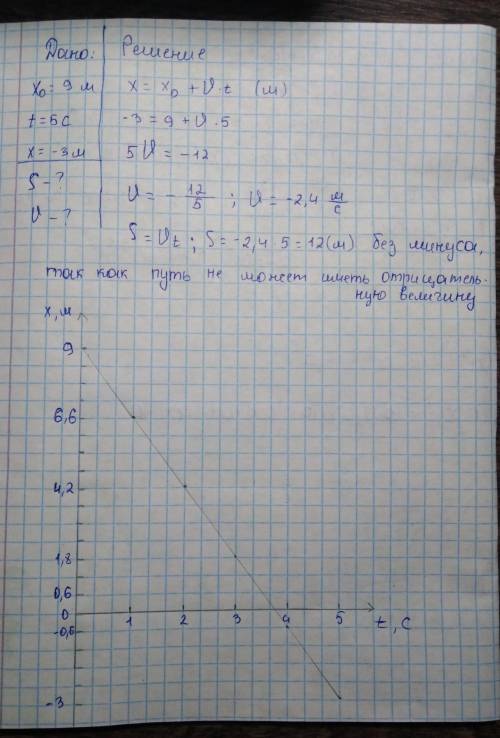 Дано:
x₀ = 9 м
t = 5 с
x = -3 м
S - ?
V - ?
Решение
x = x₀ + V · t (м)
-3 = 9 + V · 5
5 V = -12
V = - 12/5 ; V = -2,4 м/с
S = Vt ; S = -2,4 · 5 = 12 (м) без минуса,
так как путь не может иметь отрицатель-
ную величину
x, м
9
6,6
4,2
1,8
0,6
0
-0,6
-3
1 2 3 4 5 t, с